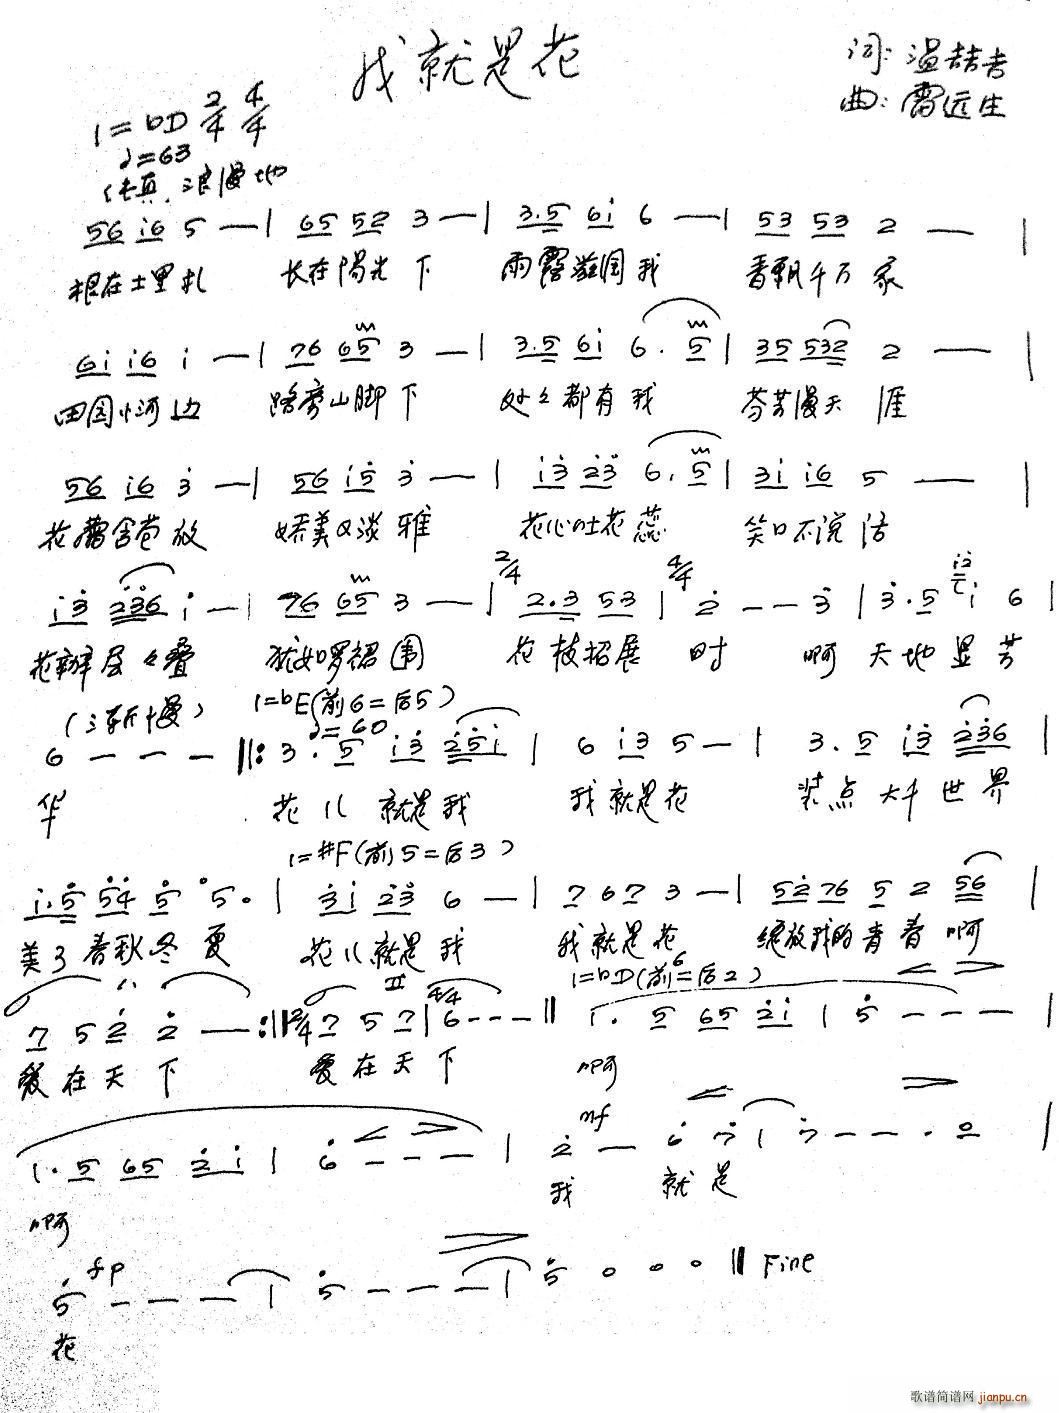 我就是花
词:温喆吉
曲:雷远生
1=bD 2/4 4/4
♩=63
纯真 浪漫地
56 i6 5 — | 65 52 3 — | 3.5 6i 6 — | 53 53 2 — |
根在土里扎 长在阳光下 雨露滋润我 香飘千万家
6i i6 i — | 76 65 3 — | 3.5 6i 6. 5 | 35 532 2 — |
田园小河边 路旁山脚下 处々都有我 芬芳漫天涯
56 i6 3 — | 56 i5 3 — | i3 23 6. 5 | 3i i6 5 — |
花蕾含苞放 娇美又淡雅 花心吐花蕊 笑口不说话
i3 236 i — | 76 65 3 — | 2/4 2.3 53 | 4/4 2 — — 3 | 3.5 i2 i 6 |
花瓣层々叠 犹如罗裙围 花枝招展时 啊 天地显芳
(渐慢) 1=bE(前6=后5)
♩=60
6 — — — ‖: 3. 5 i3 25i | 6 i3 5 — | 3. 5 i3 236 |
华 花儿就是我 我就是花 装点大千世界
1=#F(前5=后3)
i.5 54 5 5. | 3i 23 6 — | 7 67 3 — | 52 76 5 2 56 |
美了春秋冬夏 花儿就是我 我就是花 绽放我的青春啊
1=bD(前6=后2)
7 5 2 2 — :‖ 2/4 7 5 7 | 4/4 6 — — — ‖ i. 5 65 2i | 5 — — — |
爱在天下 爱在天下 啊
mf
i. 5 65 2i | 6 — — — | 2 — 6 7 | 7 — — . 0 |
啊 我 就是
fp
5 — — — | 5 — — — | 5 0 0 0 ‖ Fine
花
歌谱简谱网 jianpu.cn